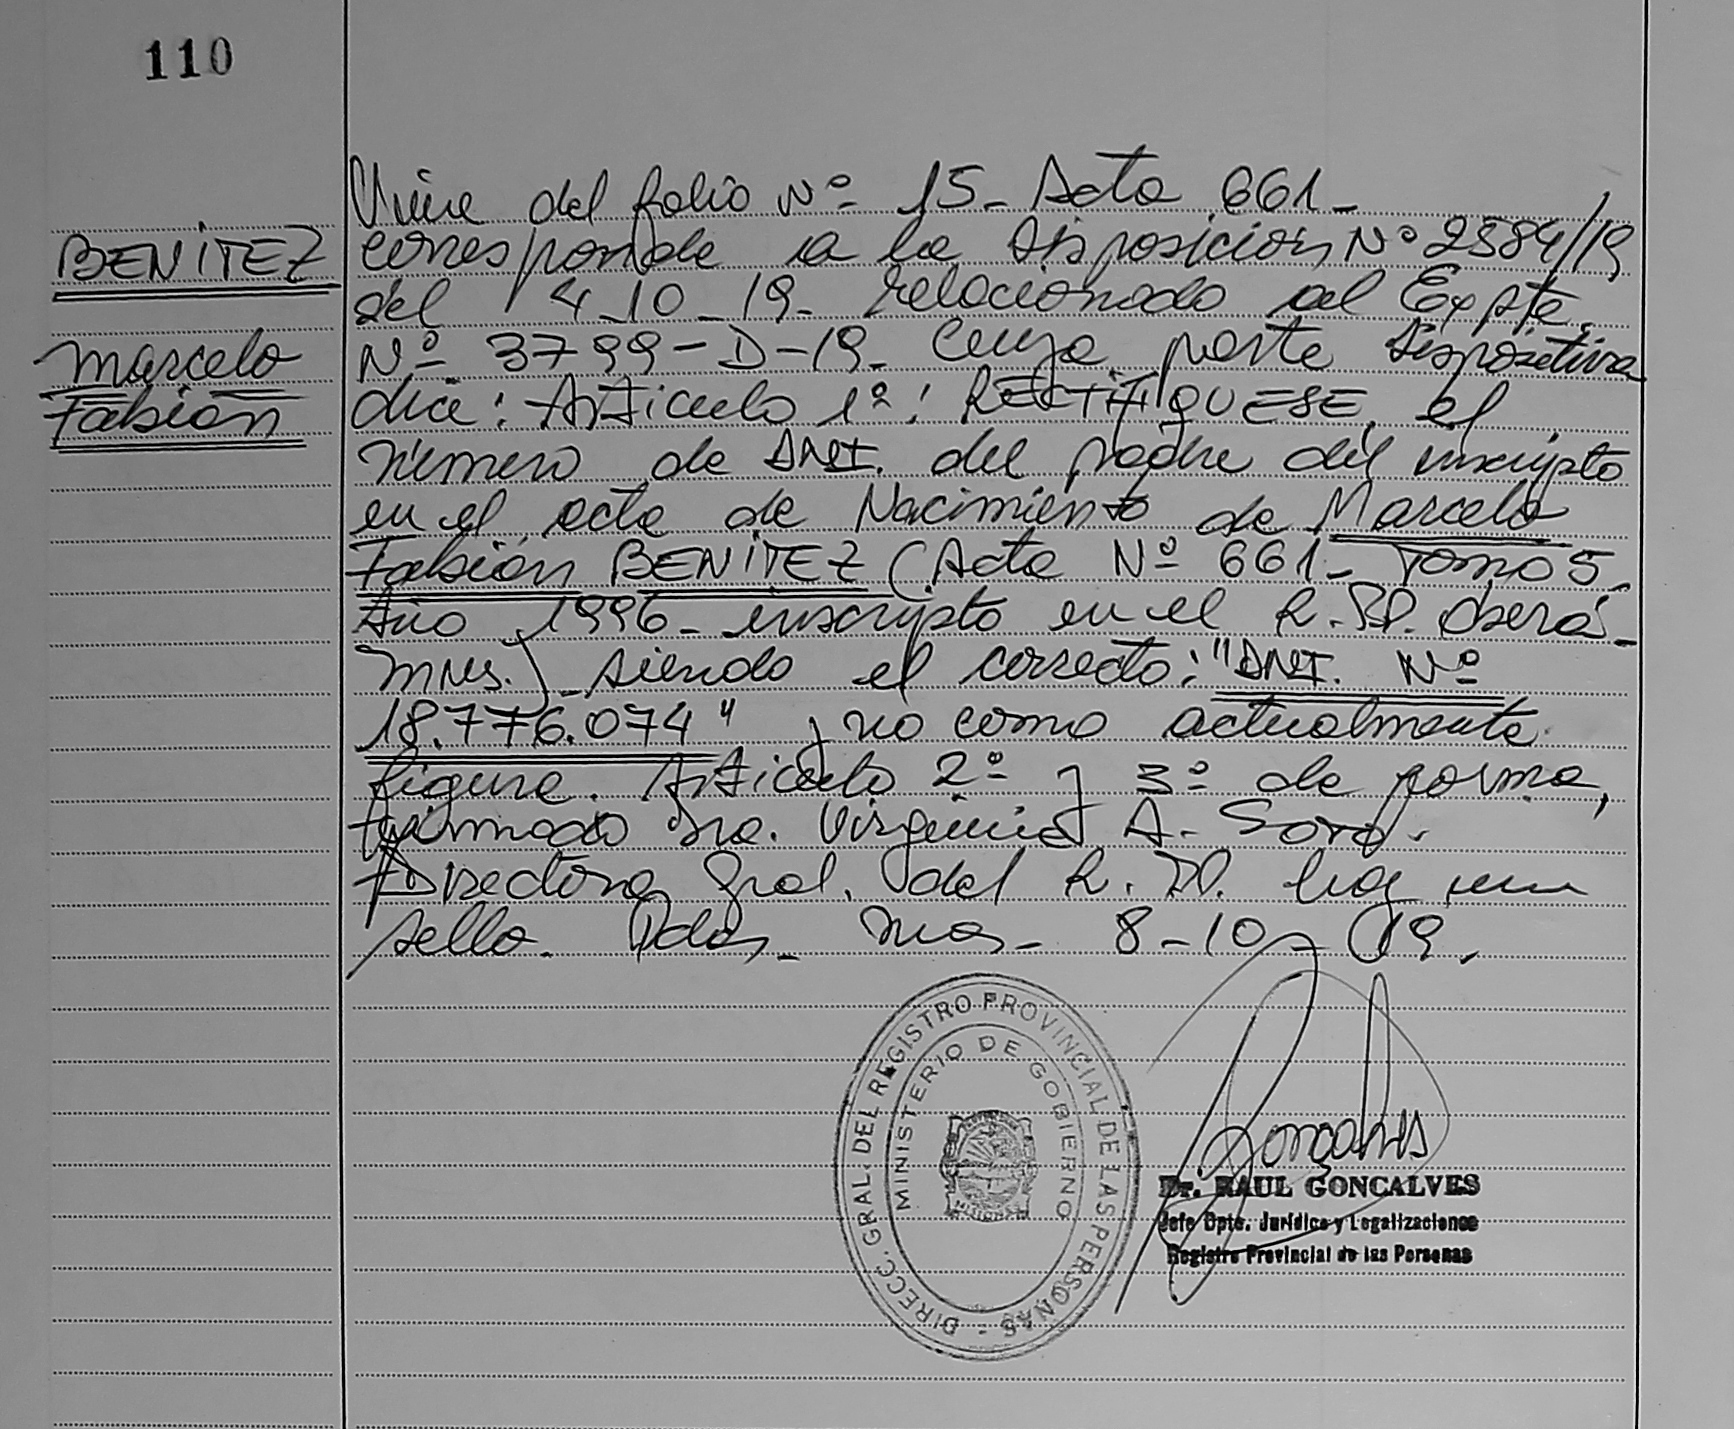 110
Viene del folio Nº 15_ Acta 661_
BENÍTEZ
corresponde a la Disposición Nº 2584/19
del 4_10_19_ relacionado al Expte.
Marcelo
Nº 3799-D-19_ Cuya parte dispositiva
Fabián
dice: Artículo 1º: RECTIFIQUESE, el
número de DNI. del padre del inscripto
en el acta de Nacimiento de Marcelo
Fabián BENÍTEZ (Acta Nº 661_ Tomo 5_
Año 1996_ inscripto en el R.P. Oberá_
Mnes.)_ siendo el correcto: "DNI. Nº
18.776.074" y no como actualmente
figura. Artículo 2º y 3º de forma,
firmado Dra. Virginia A.
Directora Gral. del R.P. hay un
sello. Pdas_ Mnes_ 8_10_19.
DIRECC. GRAL. DEL REGISTRO PROVINCIAL DE LAS PERSONAS -
MINISTERIO DE GOBIERNO
Goncalves
Dr. RAUL GONCALVES
Jefe Dpto. Jurídico y Legalizaciones
Registro Provincial de las Personas